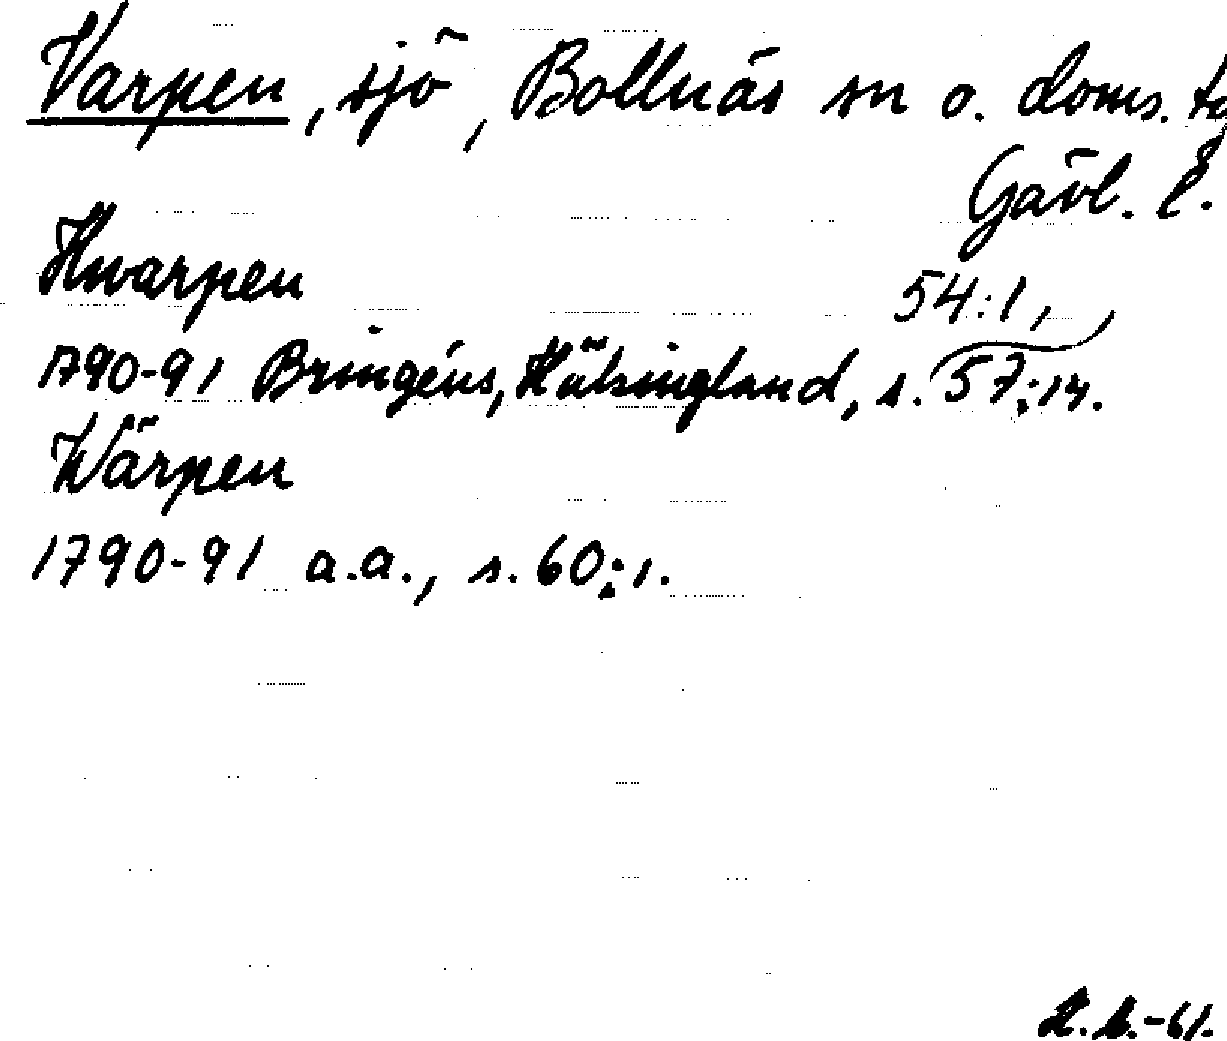 Varpen, sjö, Bollnäs sn o. doms. tg
Gävl. l.
Hwarpen
54:1,
1790-91 Bringéus, Hälsingland, s. 57:14.
Wärpen
1790-91 a.a., s. 60:1.